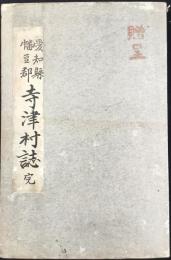 愛知縣
幡豆郡
寺津村誌 完
贈呈